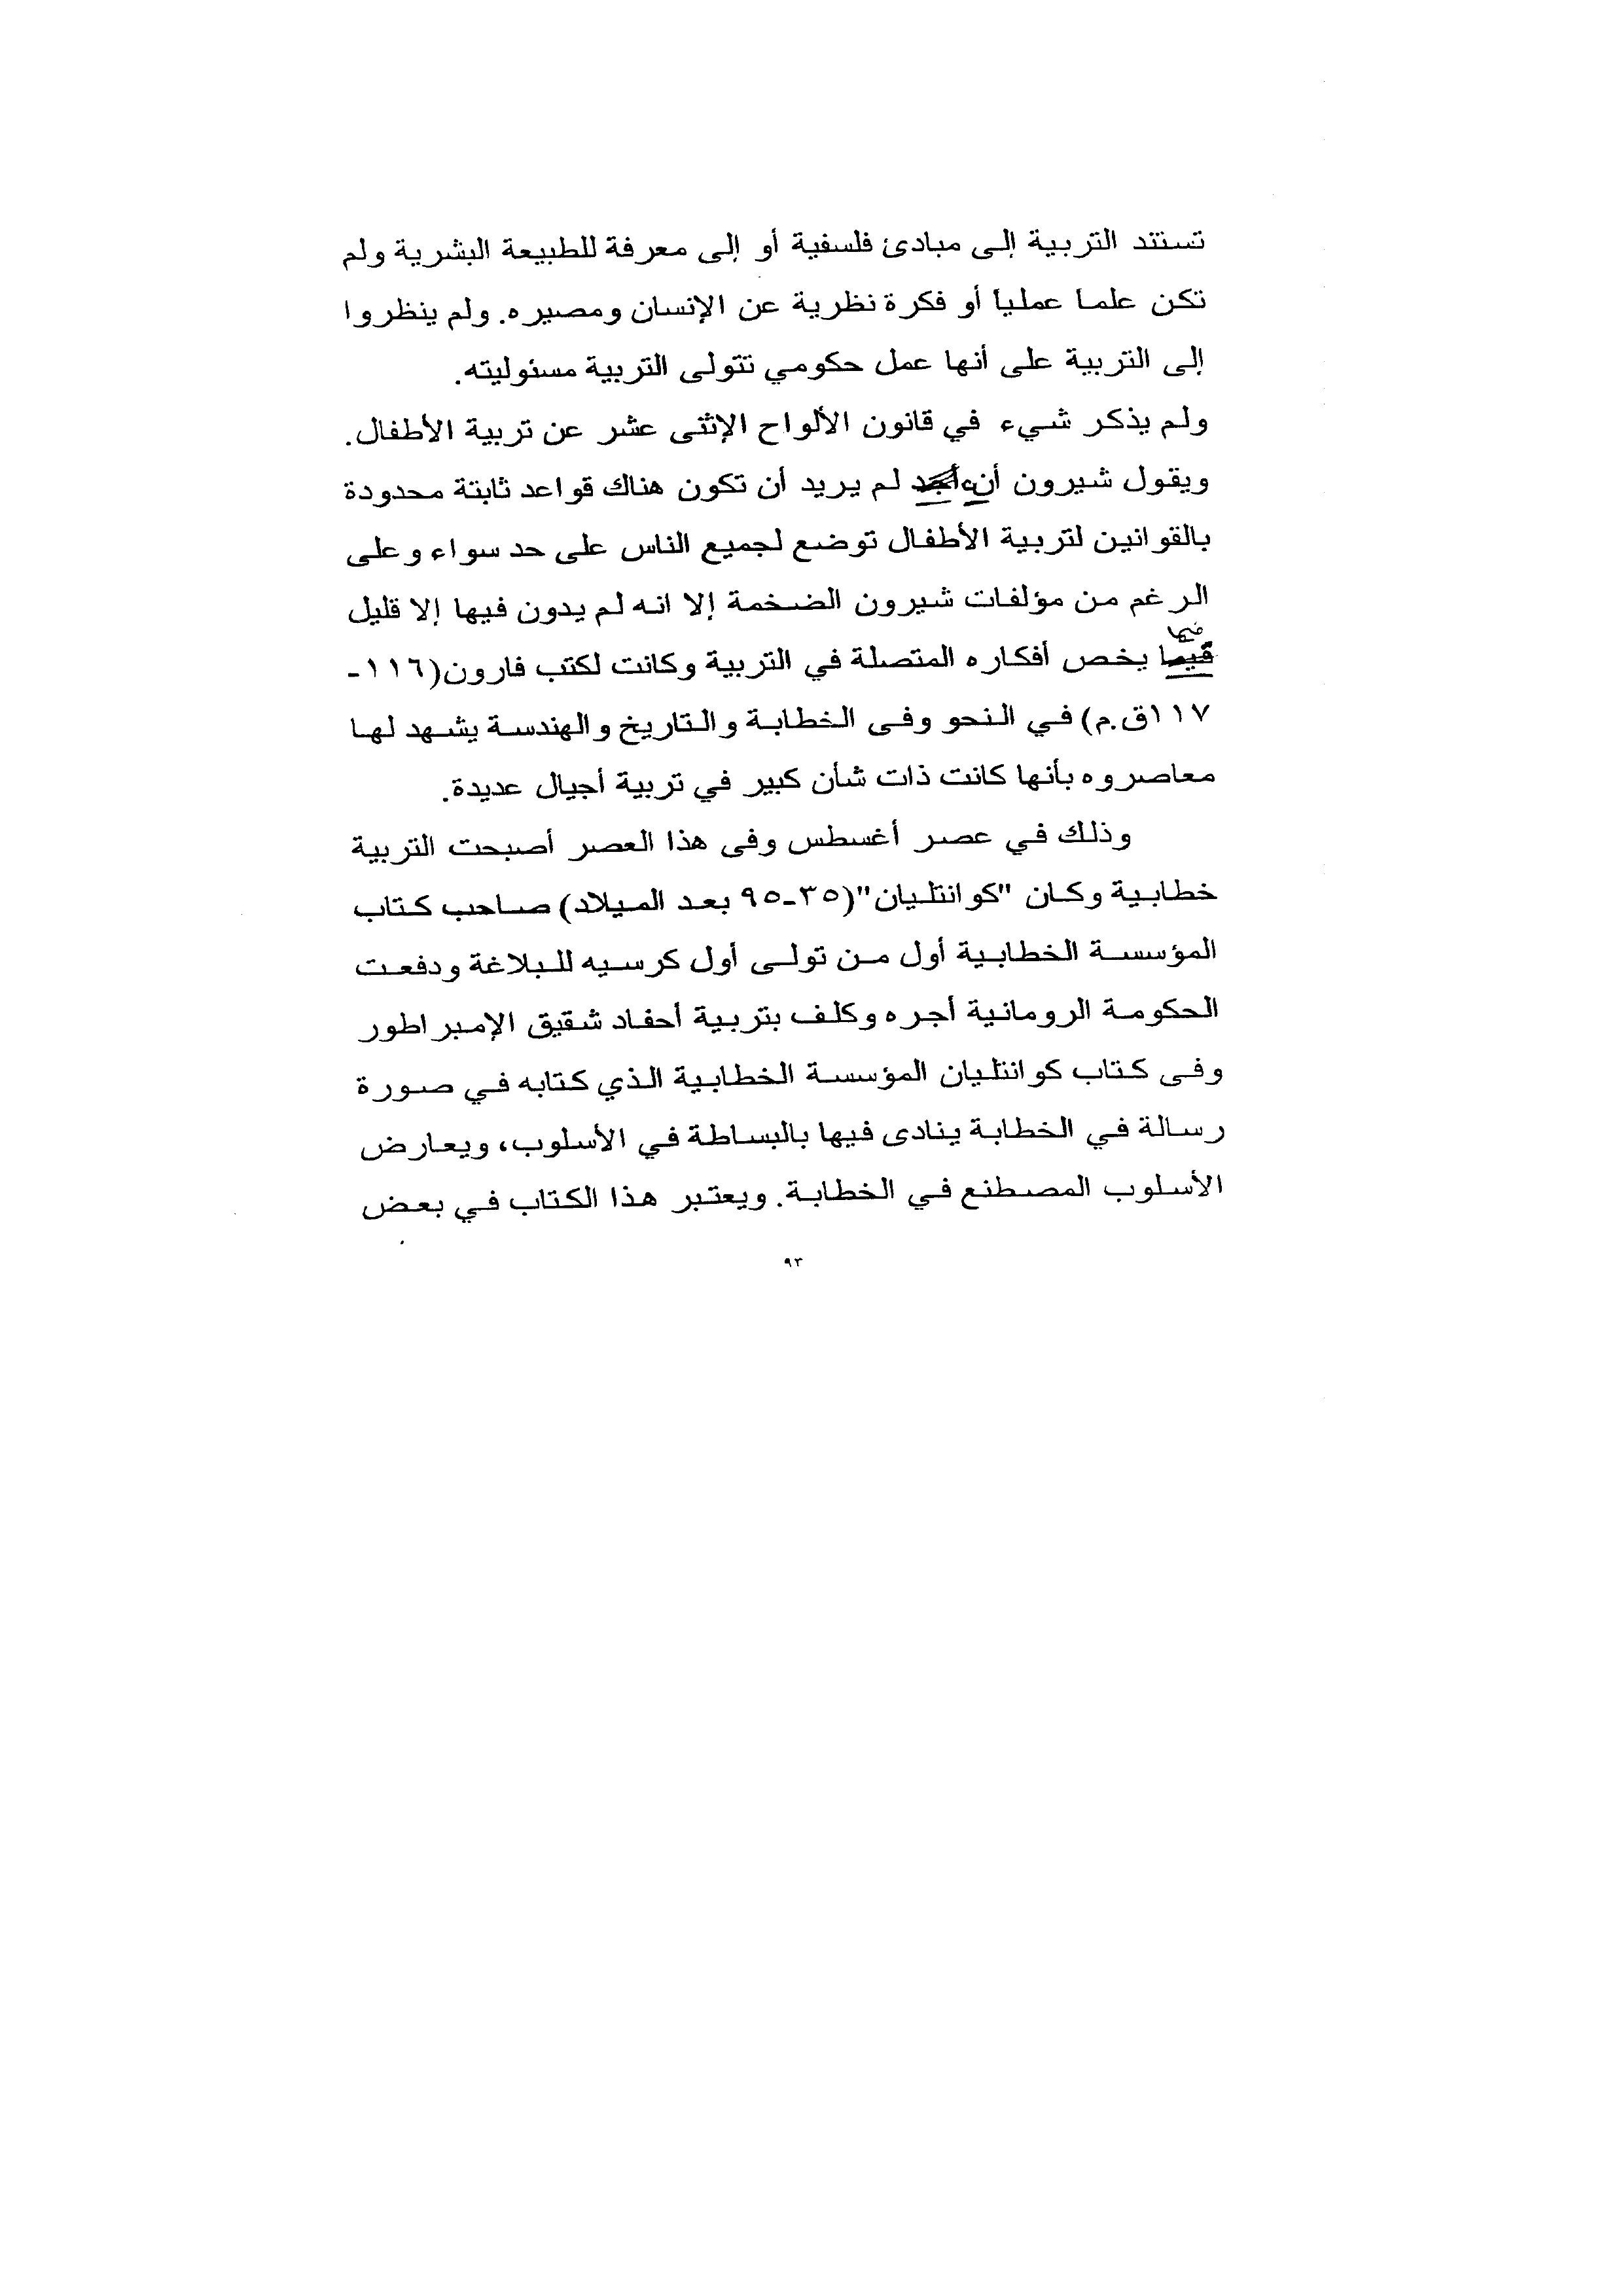 تستند التربية إلى مبادئ فلسفية أو إلى معرفة للطبيعة البشرية ولم
تكن علما عمليا أو فكرة نظرية عن الإنسان ومصيره. ولم ينظروا
إلى التربية على أنها عمل حكومي تتولى التربية مسئوليته.
ولم يذكر شيء في قانون الألواح الإثنى عشر عن تربية الأطفال.
ويقول شيرون أنه لم يريد أن تكون هناك قواعد ثابتة محدودة
بالقوانين لتربية الأطفال توضع لجميع الناس على حد سواء وعلى
الرغم من مؤلفات شيرون الضخمة إلا انه لم يدون فيها إلا قليل
فيما
فيما يخص أفكاره المتصلة في التربية وكانت لكتب فارون(١١٦-
١١٧ق.م) في النحو وفى الخطابة والتاريخ والهندسة يشهد لها
معاصروه بأنها كانت ذات شأن كبير في تربية أجيال عديدة.
وذلك في عصر أغسطس وفى هذا العصر أصبحت التربية
خطابية وكان "كوانتليان"(٣٥-٩٥ بعد الميلاد) صاحب كتاب
المؤسسة الخطابية أول من تولى أول كرسيه للبلاغة ودفعت
الحكومة الرومانية أجره وكلف بتربية أحفاد شقيق الإمبراطور
وفى كتاب كوانتليان المؤسسة الخطابية الذي كتابه في صورة
رسالة في الخطابة ينادى فيها بالبساطة في الأسلوب، ويعارض
الأسلوب المصطنع في الخطابة. ويعتبر هذا الكتاب في بعض
٩٣